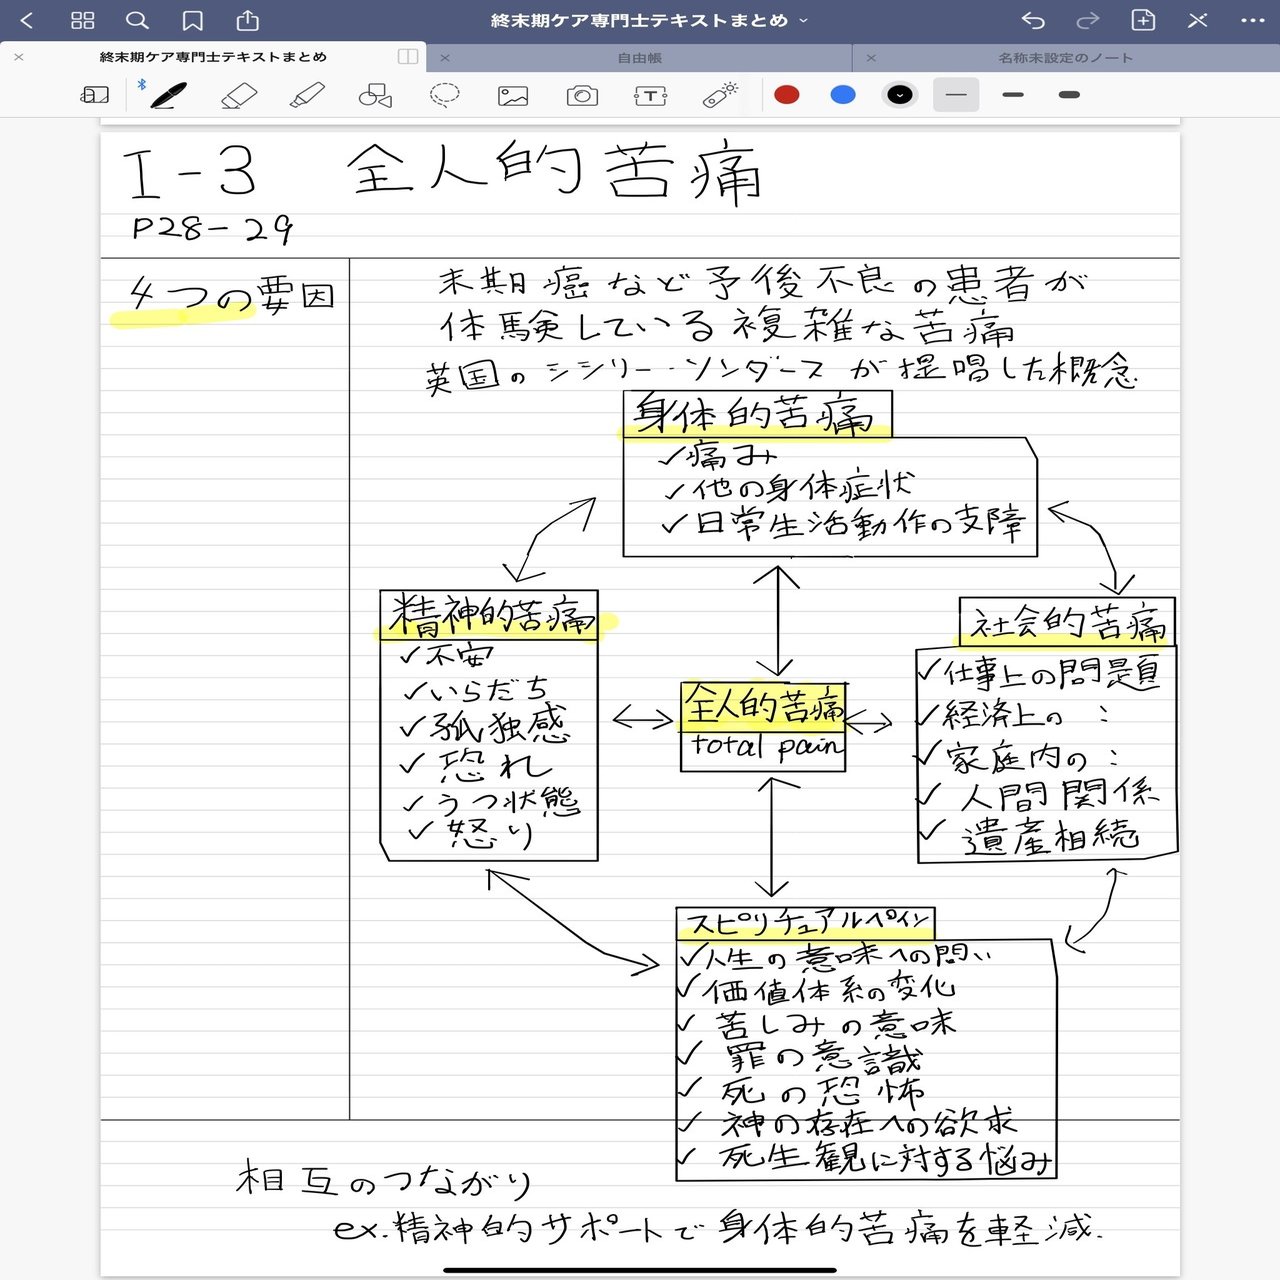 終末期ケア専門士テキストまとめ
終末期ケア専門士テキストまとめ
自由帳
名称未設定のノート
I-3 全人的苦痛
P28-29
4つの要因
末期癌など予後不良の患者が
体験している複雑な苦痛
英国のシシリー・ソンダースが提唱した概念
身体的苦痛
✓痛み
✓他の身体症状
✓日常生活動作の支障
精神的苦痛
✓不安
✓いらだち
✓孤独感
✓恐れ
✓うつ状態
✓怒り
全人的苦痛
total pain
社会的苦痛
✓仕事上の問題
✓経済上の :
✓家庭内の :
✓人間関係
✓遺産相続
スピリチュアルペイン
✓人生の意味への問い
✓価値体系の変化
✓苦しみの意味
✓罪の意識
✓死の恐怖
✓神の存在への欲求
✓死生観に対する悩み
相互のつながり
ex.精神的サポートで身体的苦痛を軽減.